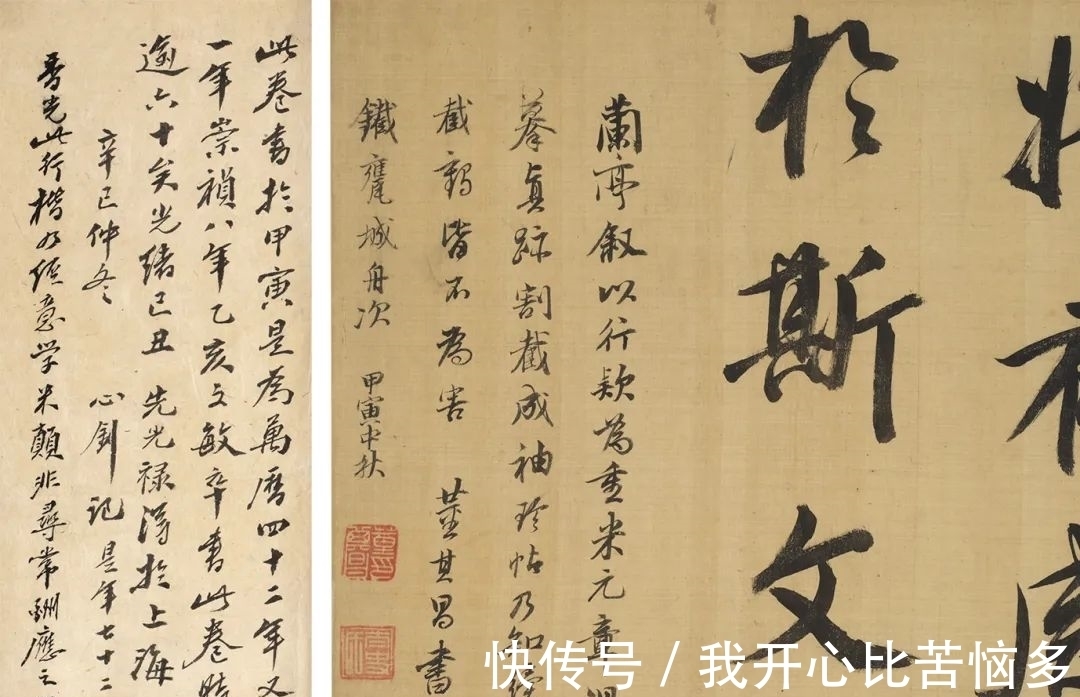 於斯文
蘭亭敘以行款為重米元章
摹真跡割截成袖珍帖乃知
截鶴皆不為害 董其昌書
鐵甕城舟次 甲寅中秋
此卷書於甲寅是為萬曆四十二年又
一年崇禎八年乙亥文敏卒書此卷時
逾六十矣光緒己丑 先光祿得於上海
辛巳仲冬 心釗記 是年七十二
香光此行楷乃經意學米顛非尋常酬應之
快传号 / 我开心比苦恼多